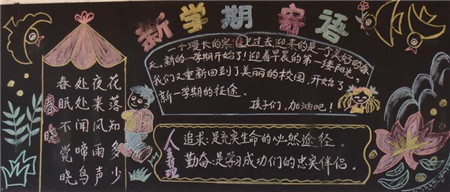 新学期寄语
春晓
春眠不觉晓
处处闻啼鸟
夜来风雨声
花落知多少
一个漫长的寒已过去,迎来的是一个美好的春
天,新的一学期开始了!迎着早晨的第一缕阳光,
我们又重新回到了美丽的校园,开始了
新一学期的征途。
孩子们,加油吧!
追求:是充实生命的必然途径.
勤奋:是学习成功们的忠实伴侣.